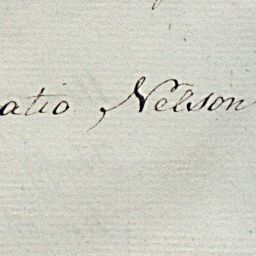 atio Nelson